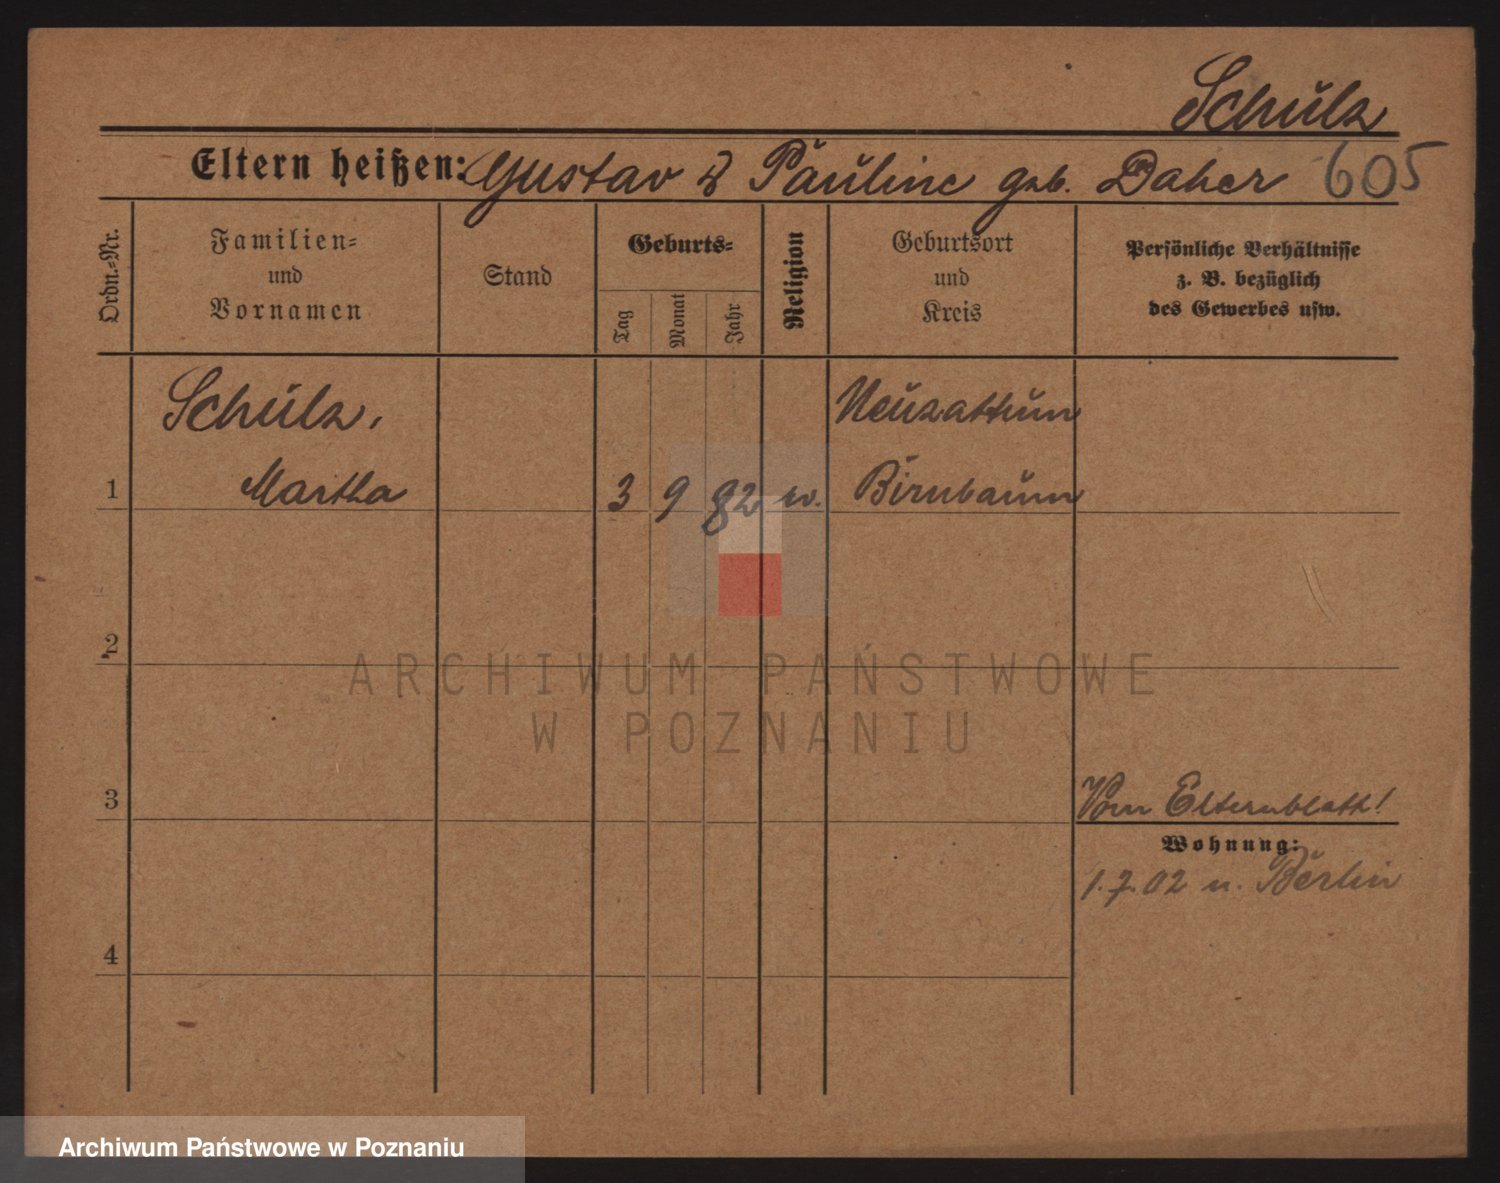 Schulz
Eltern heißen: Gustav & Pauline geb. Daher 605
Ordn.=Nr.
Familien=
und
Vornamen
Stand
Geburts=
Tag
Monat
Jahr
Religion
Geburtsort
und
Kreis
Persönliche Verhältnisse
z. B. bezüglich
des Gewerbes usw.
Schulz,
Martha
Neuzattum
1
3 9 82
Birnbaum
2
ARCHIWUM PAŃSTWOWE
W POZNANIU
3
Vom Elternblatt!
Wohnung:
1.7.02 n. Berlin
4
Archiwum Państwowe w Poznaniu